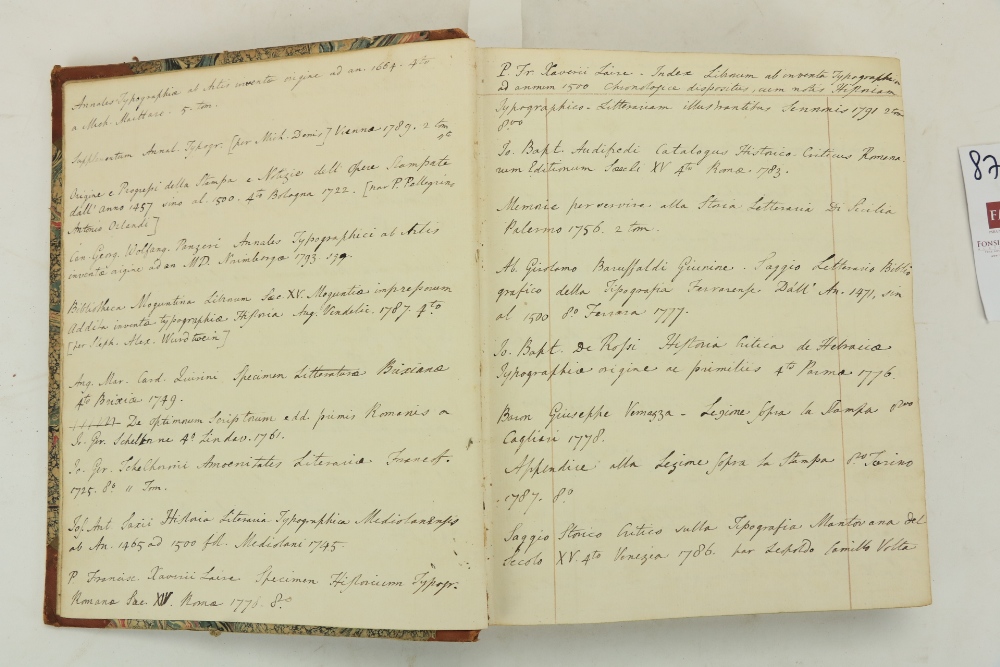 Annales Typographiæ ab Artis inventæ origine ad an. 1664. 4to
a Mich. Maittare. 5. tom.
Supplementum Annal. Typogr. [per Mich. Denis] Viennæ 1789. 2 tom
4to
Origine e Progressi della Stampa e Notizie dell' Opere Stampate
dall' Anno 1457 sino al 1500. 4to Bologna 1722. [par P. Pellegrino
Antonio Orlandi]
Ian. Georg. Wolfang. Panzeri Annales Typographici ab Artis
inventæ origine ad an. MD. Norimbergæ 1793.
Bibliotheca Moguntina Librorum Sæc. XV. Moguntiæ impressorum
Addita inventæ typographiæ Historia Aug. Vindelic. 1787. 4to
[per Steph. Alex. Wurdtwein]
Ang. Mar. Card. Quirini Specimen Litteraturæ Brixianæ
4to Brixiæ 1749.
De optimorum Scriptorum edd. primis Romanis
Io. Gr. Schelhorne 4o Lindav. 1761.
Io. Gr. Schelhornii Amoenitates Literariæ Francoff.
1725. 8o 11 Tom.
Jos. Ant Saxii Historia Literaria Typographica Mediolanensis
ab An. 1465 ad 1500 fol. Mediolani 1745.
P. Francisc. Xaverii Laire Specimen Historicum Typogr.
Romanæ Sæc. XV. Romæ 1778. 8o
P. Fr. Xaverii Laire. Index Librorum ab inventa Typographia
ad annum 1500 Chronologice dispositus, cum notis Historiam
Typographico-Litterariam illustrantibus Sennonis 1791 2 tom
8vo
Io. Bapt. Audifredi Catalogus Historico-Criticus Romana
rum Editionum Sæculi XV 4to Romæ. 1783.
Memorie per servire alla Storia Letteraria Di Sicilia
Palermo 1756. 2 tom.
Ab. Girolamo Baruffaldi Giuniore. Saggio Letterario Biblio
grafico della Tipografia Ferrarense Dall' An. 1471, sin
al 1500 8o Ferrara 1777.
Io. Bapt. De Rossi Historia Critica de Hebraicæ
Typographiæ origine ac primitiis 4to Parmæ 1776.
Baron Giuseppe Vernazza - Lezione sopra la Stampa 8vo
Cagliari 1778.
Appendice alla Lezione sopra la Stampa 8vo Torino
1787. 8o
Saggio Storico Critico sulla Tipografia Mantovana del
Secolo XV. 4to Venezia 1786. par Leopoldo Camillo Volta
87